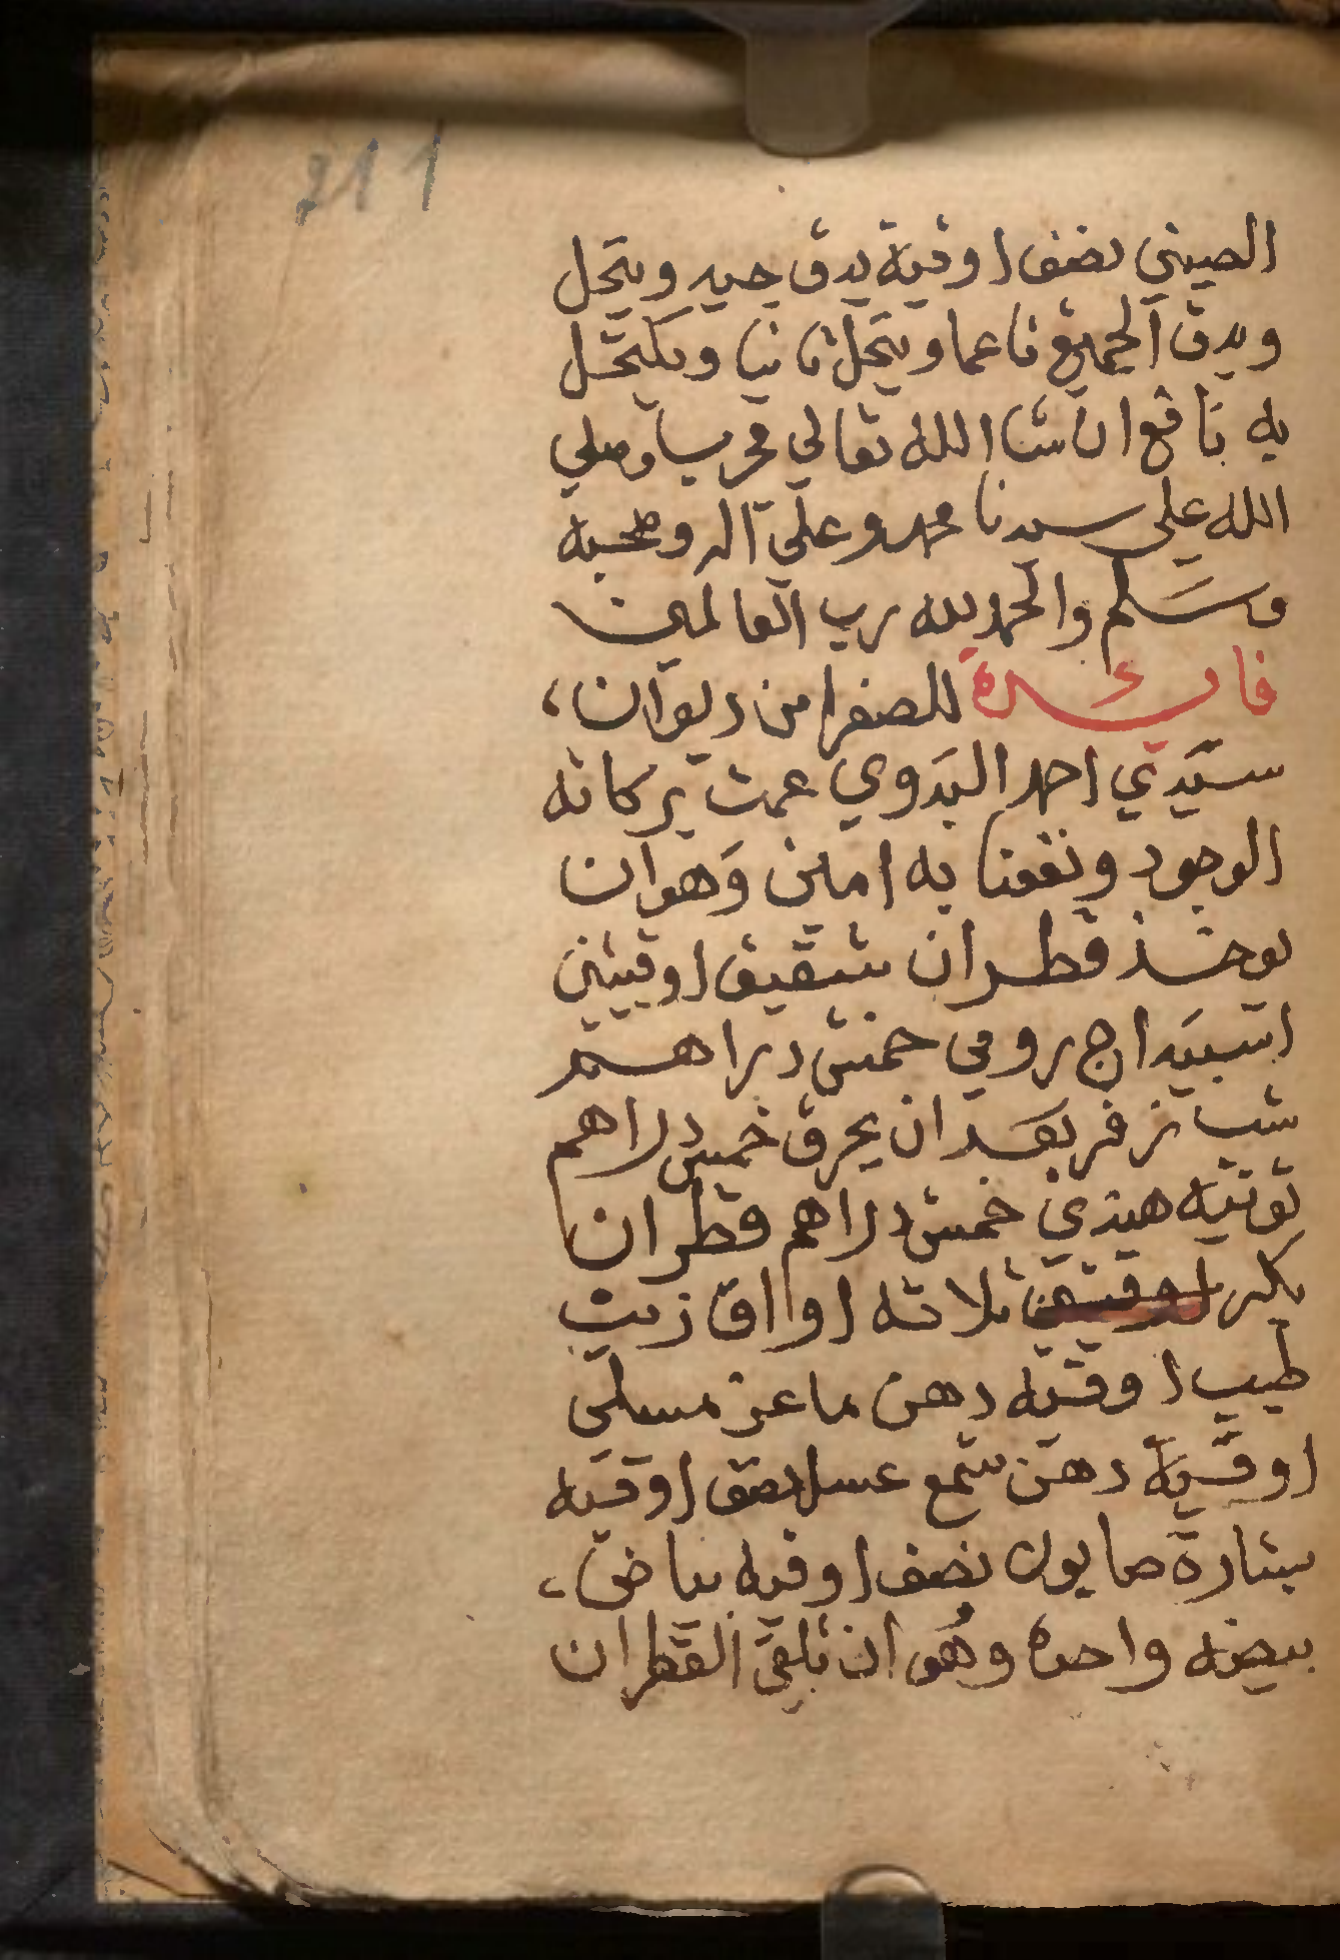 211
الصيني نصف اوقية يدق جيد وينخل
ويدق الجميع ناعما وينخل ثانيا ويكتحل
به نافع ان شا الله تعالي مجرب وصلي
الله علي سيدنا محمد وعلي اله وصحبه
وسلم والحمد لله رب العالمين
فائدة للصفرا من ديوان،
سيدي احمد البدوي عمت بركاته
الوجود ونفعنا به امين وهو ان
يوخذ قطران شقيق اوقيتين
اسبيداج رومي خمس دراهم
شب زفر بعد ان يحرق خمس دراهم
توتيه هندي خمس دراهم قطران
بكر اوقيتين ثلاثه اواق زيت
طيب اوقيه دهن ماعز مسلي
اوقية دهن شمع عسل نصف اوقيه
بشارة صابون نصف اوقيه بياض،
بيضه واحده وهو ان تلقي القطران